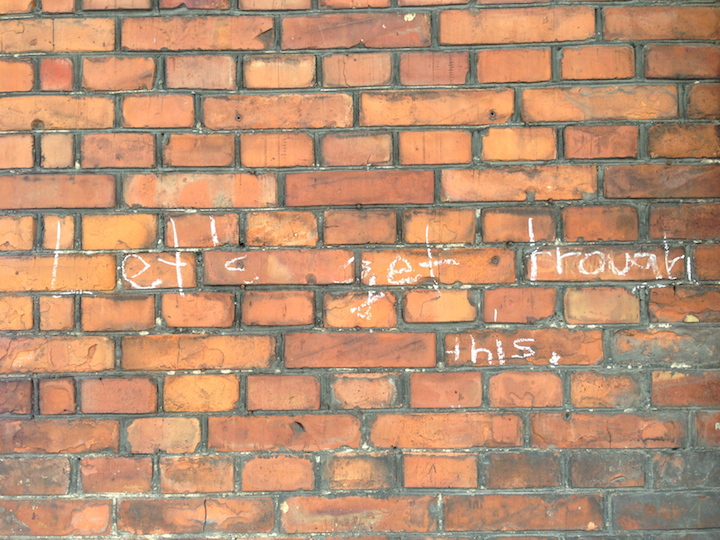 Let's get trough
this.